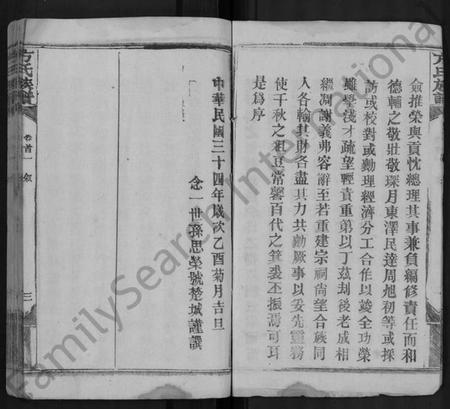 僉推榮與貢忱總理其事兼負編修責任而和
德輔之敬壯敬琛月東澤民達周旭初等或採
訪或校對或勷理經濟分工合作以竣全功榮
雖學淺才疏望輕責重第以丁茲刼後老成相
繼凋謝義弗容辭至若重建宗祠尚望合族同
人各輸其財各盡其力共勷厥事以妥先靈務
使千秋之俎豆常馨百代之箕裘丕振焉可耳
是爲序
中華民國三十四年歲次乙酉菊月吉旦
念一世裔思榮號楚城謹譔
方氏族譜
卷首一
敘
三
方氏族譜
FamilySearch International